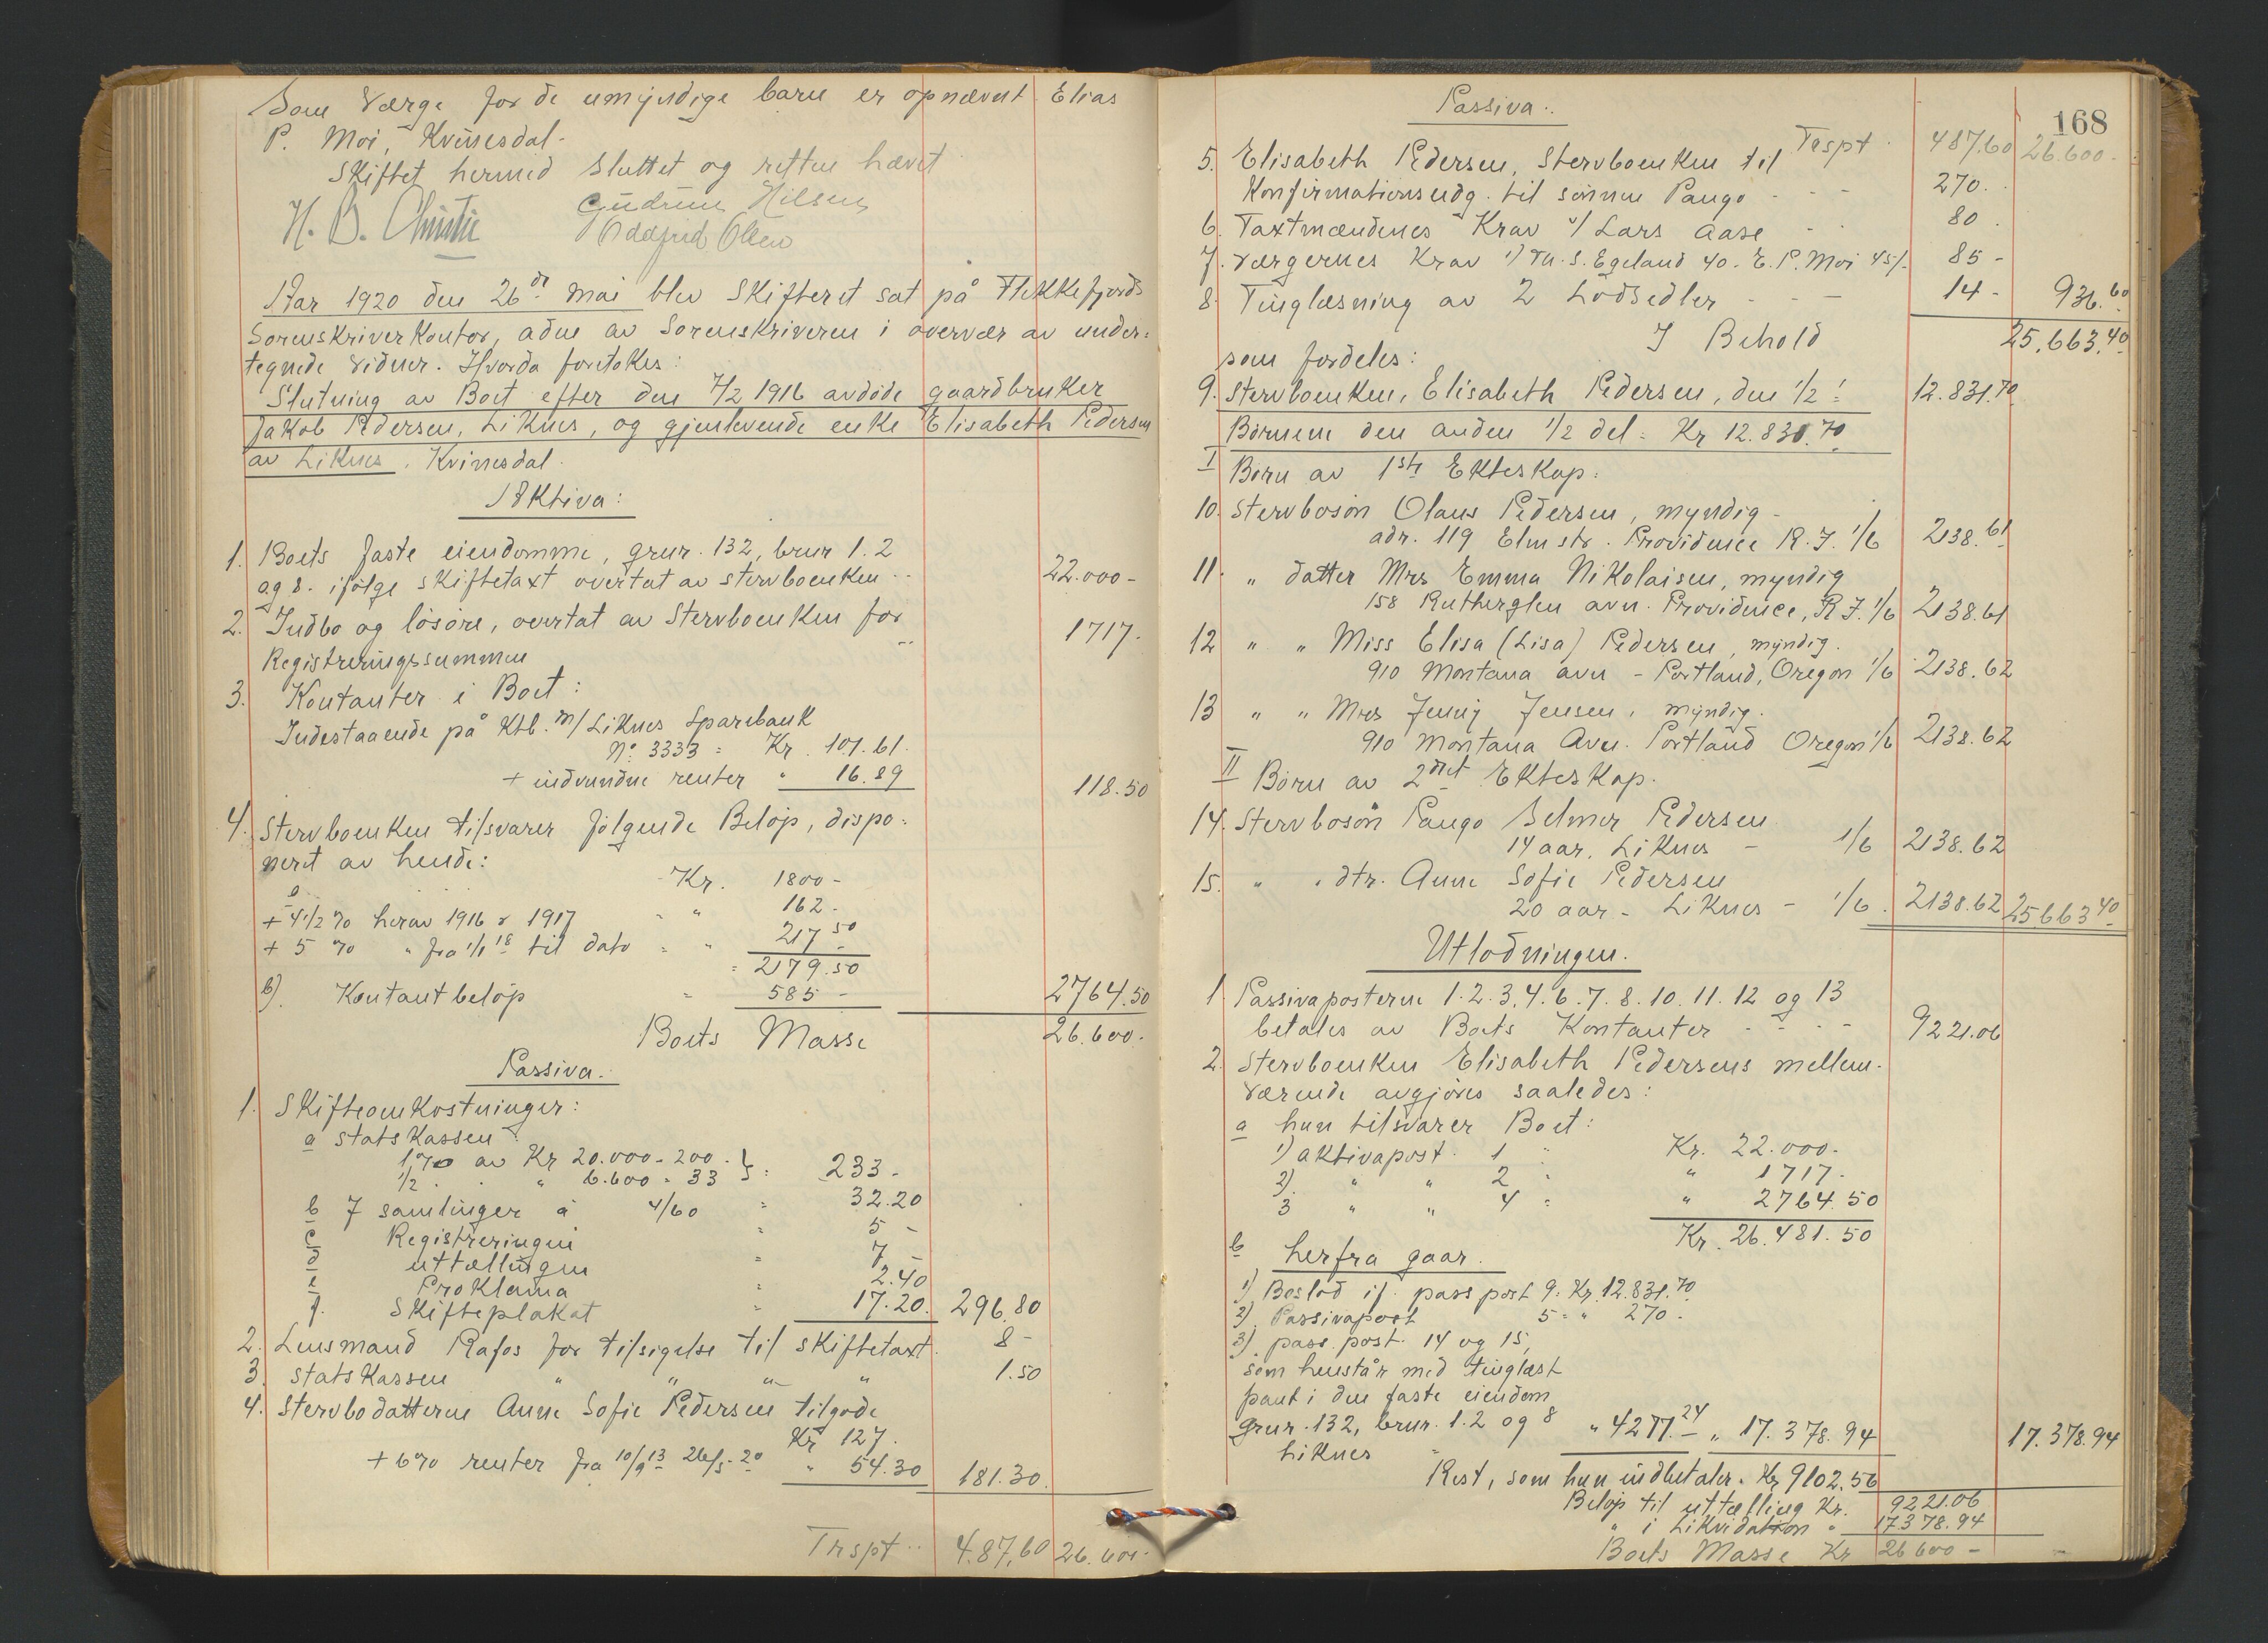 Som Værge for de umyndige barn er opnævnt Elias
P. Moi, Kvinesdal.
Skiftet hermed sluttet og retten hævet
H. B. Christie Gudrun Nilsen
Oddfrid Olsen
Aar 1920 den 26de mai blev Skifteret sat på Flekkefjords
Sorenskriverkontor, adm av Sorenskriveren i overvær av under=
tegnede vidner. Hvorda foretokes:
Slutning av Boet efter den 7/2 1916 avdøde gaardbruker
Jakob Pedersen, Liknes, og gjenlevende enke Elisabeth Pedersen
av Liknes. Kvinesdal.
Aktiva:
1. Boets faste eiendomme, grnr. 132, brnr 1.2
og 8. ifølge skiftetaxt overtat av stervboenken 22.000-
2. Indbo og løsøre, overtat av Stervboenken for
Registreringssummen 1717.
3. Kontanter i Boet:
Indestaaende på Ktb. m/ Liknes Sparebank
No. 3333 = Kr. 101.61.
+ indvundne renter " 16.89 118.50
4. Stervboenken tilsvarer følgende Beløp, dispo=
nert av hende:
a Kr. 1800-
+ 4 1/2 % herav 1916 & 1917 " 162-
+ 5 % " fra 1/1 18 til dato = " 217 50
= 2179.50
b). Kontantbeløp = 585- 2764.50
Boets Masse 26.600.
Passiva.
1. Skifteomkostninger:
a statskassen
1% av Kr 20.000 - 200.
1/2 . " 6.600 = 33 } = 233-
b 7 samlinger à 4/60 = 32.20
c Registreringen = 5-
d uttællingen = 7-
e Proklama = 2.40
f. Skifteplakat = 17.20. 296.80
2. Lensmand Rafos for tilsigelse til skiftetaxt. 8-
3. Statskassen " " " " 1.50
4. Stervbodatteren Anne Sofie Pedersen tilgode
Kr 127.
+ 6% renter fra 10/9 13 26/5-20 " 54.30 181.30.
Trspt.. 487,60 26.600-
168
Passiva.
Trspt 487.60 26.600-
5. Elisabeth Pedersen, Stervboenken til
Konfirmationsudg. til sønnen Pango - - - 270.
6. Taxtmændenes Krav v/ Lars Aase - 80
7. Værgernes Krav 1) Th. S. Egeland 40. E. P. Moi 45/- 85-
8. Tinglæsning av 2 Lodsedler - - - 14- 936.60
I Behold 25.663.40
som fordeles:
9. Stervboenken, Elisabeth Pedersen, den 1/2: 12.831.70
Børnene den anden 1/2 del = Kr 12.831.70
I Børn av 1ste Ekteskap:
10. Stervbosøn Olaus Pedersen, myndig -
adr. 119 Elm str. Providence R.I. 1/6 2138.61
11. " datter Mrs Emma Nikolaisen, myndig
158 Rutherglen avn. Providence, R.I. 1/6 2138.61
12 " " Miss Elisa (Lisa) Pedersen, myndig.
910 Montana avn - Portland, Oregon 1/6 2138.62
13 " " Mrs Jenny Jensen, myndig.
910 Montana Avn. Portland Oregon 1/6 2138.62
II Børn av 2det Ekteskap.
14. Stervbosøn Pango Selmer Pedersen
14 aar. Liknes - 1/6 2138.62
15. " . dtr. Anne Sofie Pedersen
20 aar - Liknes - 1/6. 2138.62 25.663 40
Utlodningen.
1 Passivaposterne 1.2.3.4.6.7.8.10.11.12 og 13
betales av Boets Kontanter - - - - 9221.06
2. Stervboenken Elisabeth Pedersens mellem-
værende avgjøres saaledes:
a hun tilsvarer Boet:
1) aktivapost 1 = Kr. 22.000.
2) " " 2 = " 1717.
3 " " 4 = " 2764.50
Kr. 26.481.50
b herfra gaar.
1) Boslod if. pass post 9. Kr. 12.831.70
2). Passivapost 5 = " 270.
3) pass. post. 14 og 15,
som henstår med tinglæst
pant i den faste eiendom
Grnr. 132, brnr. 1.2 og 8 " 4277.24 " 17.378.94 17.378.94
Liknes
Rest, som hun indbetaler. Kr 9102.56
Beløp til uttælling Kr. 9221.06
" i Likvidation " 17378.94
Boets Masse Kr 26600-